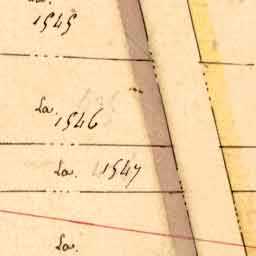 1545
La.
1546
La. 1547
La.